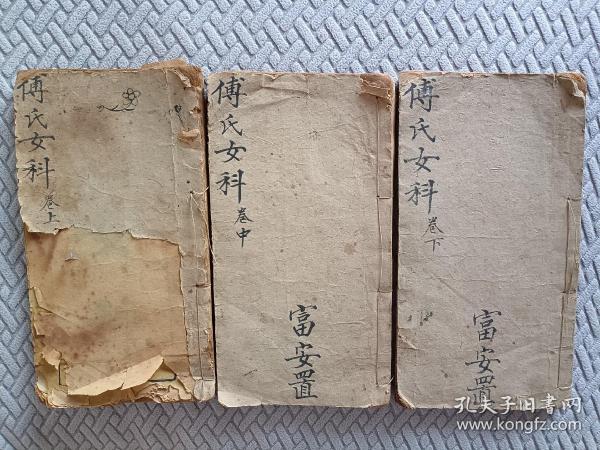 傅氏女科
卷上
傅氏女科
卷中
富安置
傅氏女科
卷下
富安置
孔夫子旧书网
www.kongfz.com